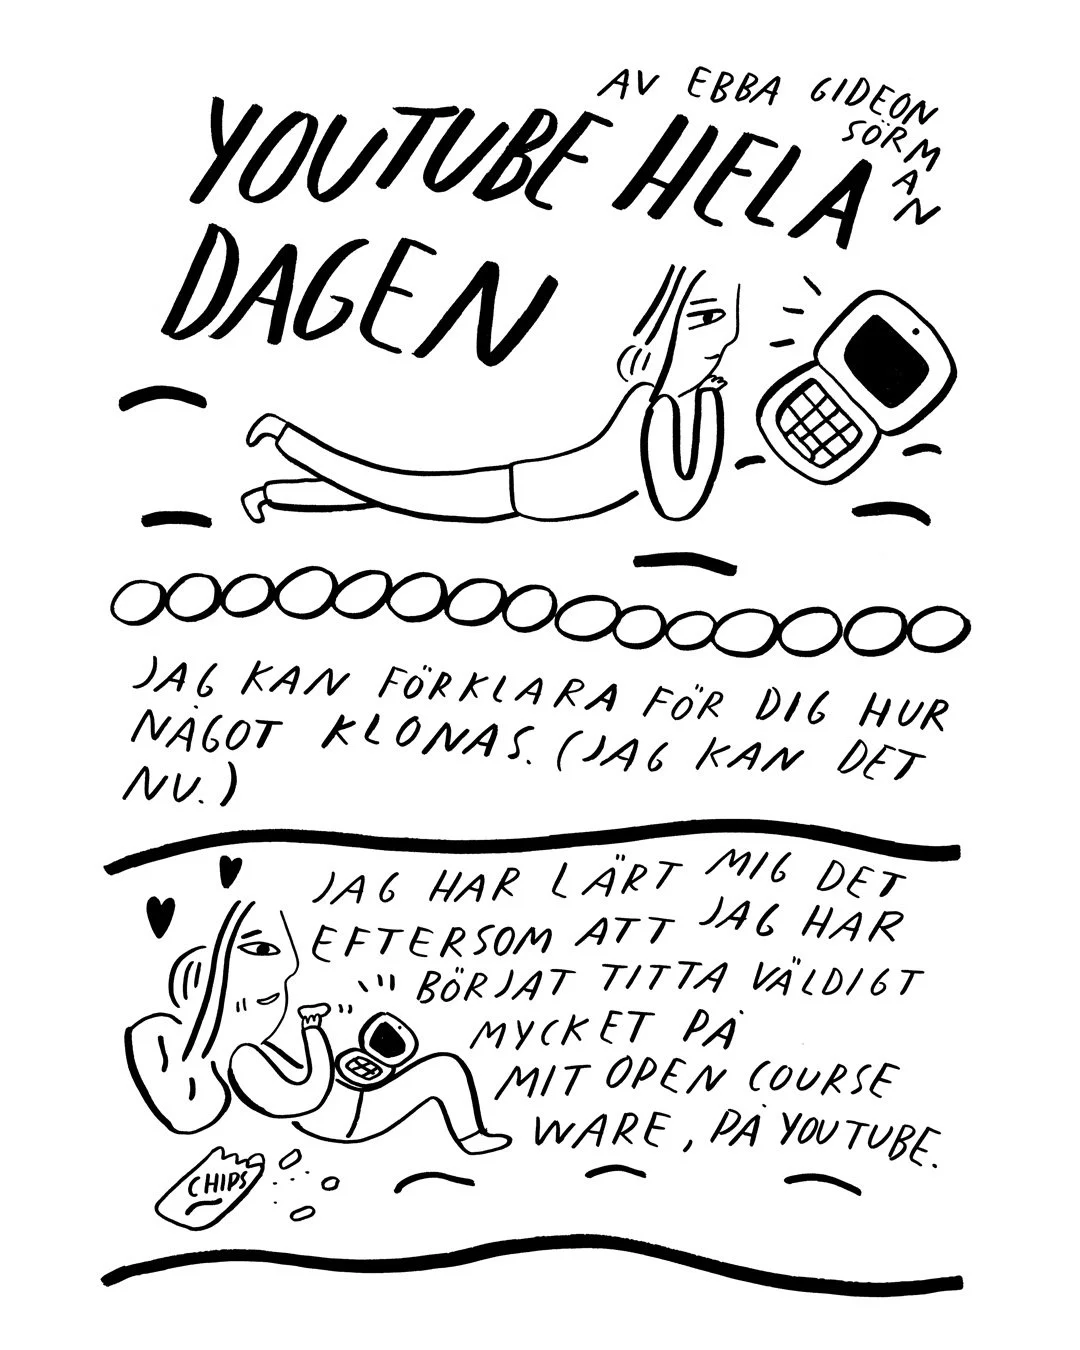 AV EBBA GIDEON
SÖRMAN
YOUTUBE HELA
DAGEN
JAG KAN FÖRKLARA FÖR DIG HUR
NÅGOT KLONAS. (JAG KAN DET
NU.)
JAG HAR LÄRT MIG DET
EFTERSOM ATT JAG HAR
BÖRJAT TITTA VÄLDIGT
MYCKET PÅ
MIT OPEN COURSE
WARE, PÅ YOUTUBE.
CHIPS